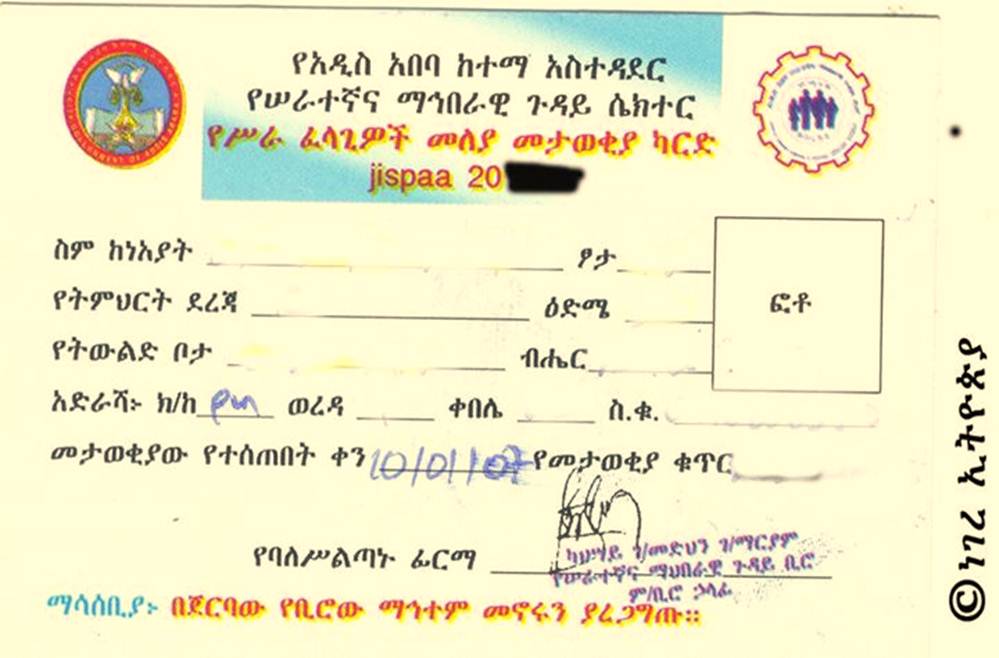 የአዲስ አበባ ከተማ አስተዳደር
የሠራተኛና ማኅበራዊ ጉዳይ ሴክተር
የሥራ ፈላጊዎች መለያ መታወቂያ ካርድ
jispaa 20
ስም ከነአያት ፆታ
የትምህርት ደረጃ ዕድሜ
ፎቶ
የትውልድ ቦታ ብሔር
አድራሻ፦ ክ/ከ የካ ወረዳ ቀበሌ ስ.ቁ.
መታወቂያው የተሰጠበት ቀን 10/01/07 የመታወቂያ ቁጥር
የባለሥልጣኑ ፊርማ
ካህሣይ ገ/መድህን ገ/ማርያም
የሠራተኛና ማህበራዊ ጉዳይ ቢሮ
ም/ቢሮ ኃላፊ
ማሳሰቢያ፦ በጀርባው የቢሮው ማኅተም መኖሩን ያረጋግጡ።
©ነገረ ኢትዮጵያ